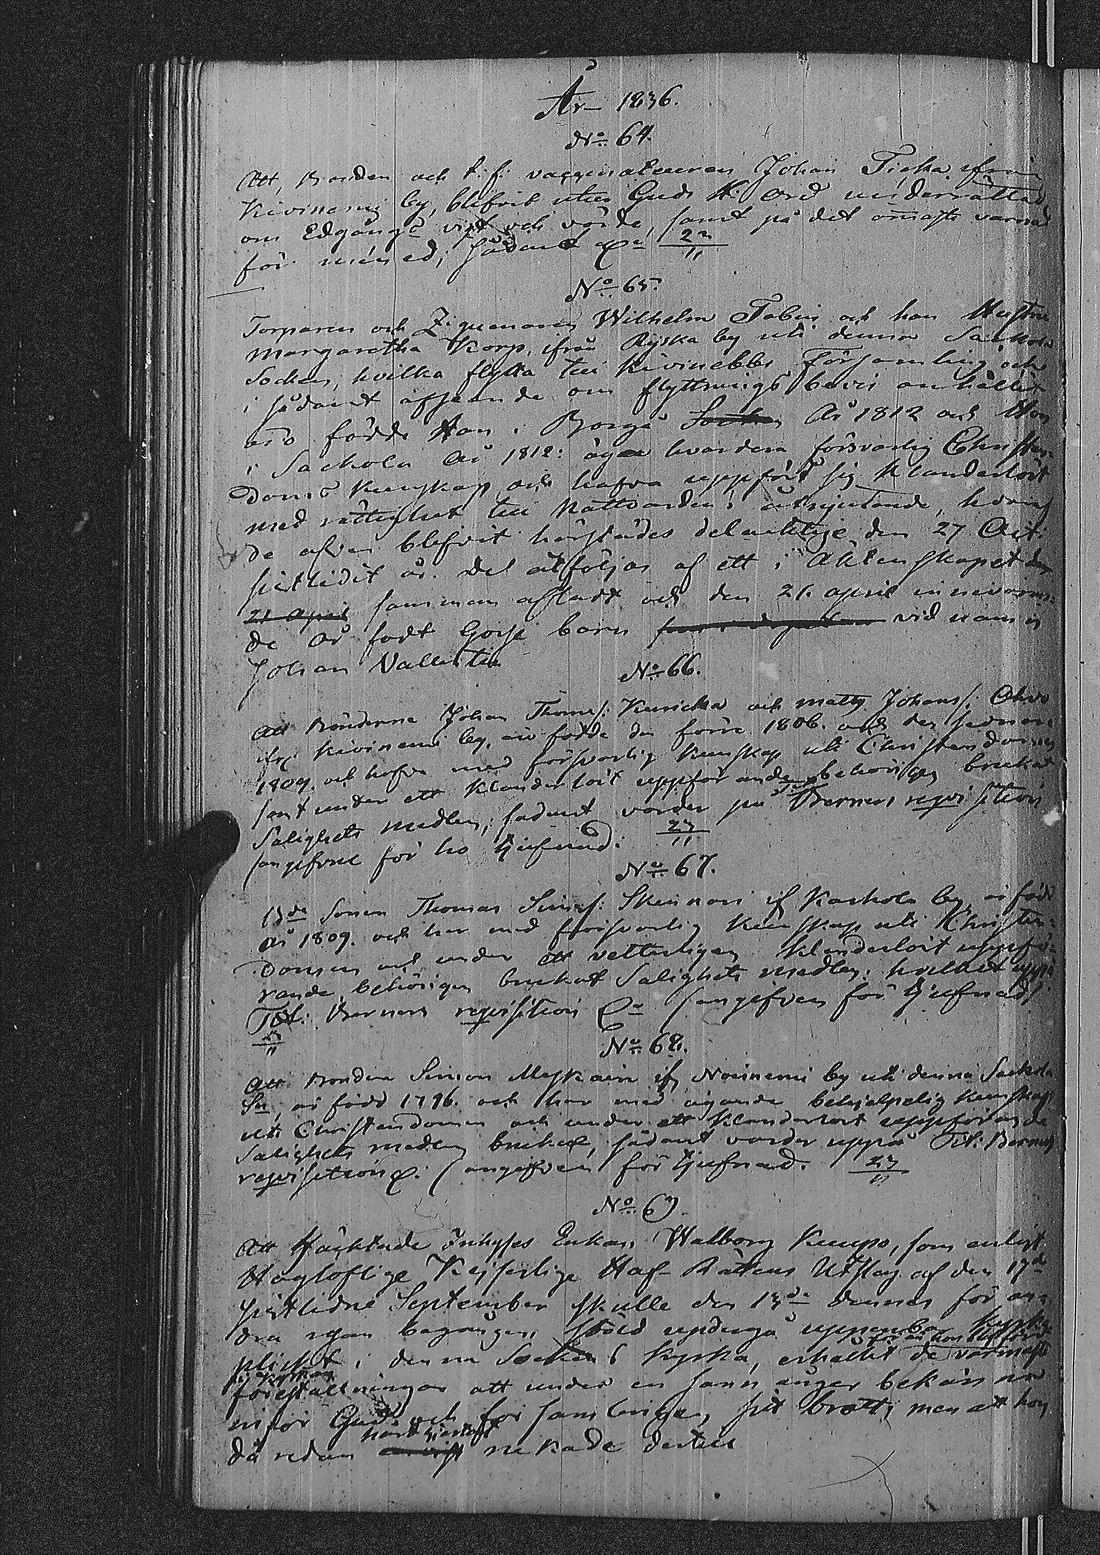 År 1836.
No 64.
Att, Bonden och t.f. vaccinateuren Johan Ticka ifrån
Kiviniemi by, blifvit utur Guds H. Ord underrättad
om Edgångs vigt och värde, samt på det ömmaste varnad
för mened; sådant
No 65.
Torparen och Ziguenaren Wilhelm Tobin och han Hustru
Margaretha Korp, ifrån Ryska by uti denna Sackola
Socken, hvilka flytta till Kivinebbs Församling och
i sådant afseende om flyttnings bevis anhållit
äro födde Han i Borgå År 1812 och Hon
i Sackola År 1812: äga hvardera försvarlig Christen-
doms kunskap och hafva uppfört sig klanderlöst
med rättighet till Nattvardens åtnjutande, hvaraf
de äfven blefvit härstädes delaktige den 27 Oct.
sistlidit år. Det åtföljes af ett i Äktenskapet den
21 April samman afladt och den 21. april innevaran-
de År födt Gosse barn vid namn
Johan Valentin
No 66.
Att Bönderne Johan Thomas. Kuricka och Matts Johans.
ifr. Kiviniemi by, äro födde den förre 1806. och den sednare
1809. och hafva med försvarlig kunskap uti Christendomen
samt under ett klanderlöst uppförande behörigen brukat
Salighets medlen; sådant varder på Berners requisition
(angifvne för tjufnad.
No 67.
Bde Sonen Thomas Simons. Skinnari if Karhola by, är född
År 1809. och har med försvarlig kunskap uti Christen-
domen och under ett vetterligen klanderlöst uppfö-
rande behörigen brukat Salighets medlen; hvilket uppå
Tit. Berners requisition (angifven för tjufnad)
No 68.
Att Bonden Simon Myskain ifr Noisniemi by uti denna Sackola
Sn, är född 1796. och har med ägande behjelpelig kunskap
uti Christendomen och under ett klanderlöst uppförande
Salighets medlen brukat, sådant varder uppå Tit: Berners
requisition. (angifven för tjufnad. 23/11
No 69.
Att Häcktade Inhyses Enkan Walborg Kumpo, som enligt
Högloflige Kejserlige Hof-Rättens Utslag af den 17de
sistledne September skulle den 13de dennes för an-
dra resan begången stöld undergå uppenbar kyrko
plickt i denna Sockens kyrka, erhållit de varmaste
föreställningar att under en sann ånger bekänna
inför Gud och församlingen, sitt brott, men at hon
då redan nekade dertill